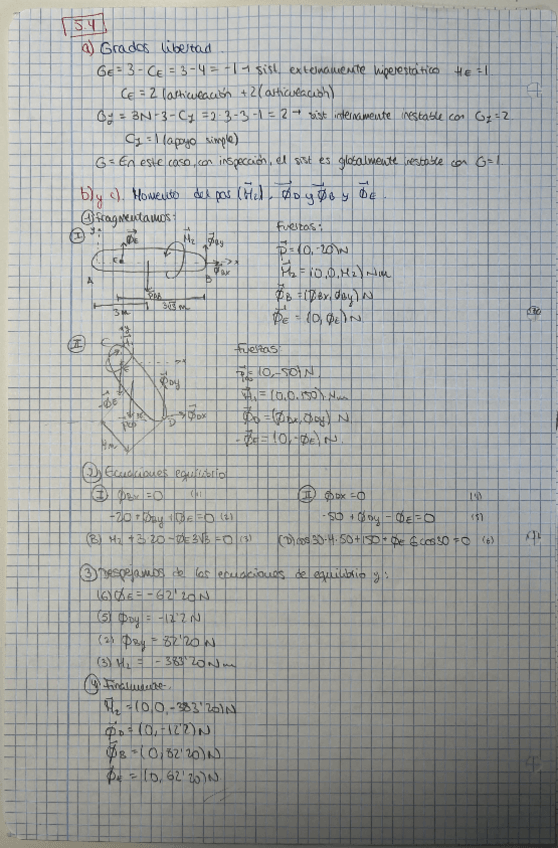 5.4
a) Grados libertad.
G_E = 3 - C_E = 3 - 4 = -1 → sist. externamente hiperestático H_E = 1
C_E = 2 (articulación + 2 (articulación)
G_I = 3N - 3 - C_I = 2·3 - 3 - 1 = 2 → sist internamente inestable con G_I = 2.
C_I = 1 (apoyo simple)
G = En este caso, con inspección, el sist es globalmente inestable con G = 1
b) y c). Momento del par (M₂). Φ_D y Φ_B y Φ_E.
① Fragmentamos:
I
y
Φ_E
M₂
Φ_By
E
Φ_Bx
A
B
3m
3√3 m
Fuerzas:
P = (0, -20) N
M₂ = (0, 0, M₂) Nm
Φ_B = (Φ_Bx, Φ_By) N
Φ_E = (0, Φ_E) N
II
C
Φ_Dy
Φ_Dx
D
Fuerzas:
P = (0, -50) N
M₁ = (0, 0, 150) Nm
Φ_D = (Φ_Dx, Φ_Dy) N
-Φ_E = (0, -Φ_E) N.
② Ecuaciones equilibrio
I Φ_Bx = 0 (1)
-20 + Φ_By + Φ_E = 0 (2)
(B) M₂ + 3·20 - Φ_E 3√3 = 0 (3)
II Φ_Dx = 0 (4)
-50 + Φ_Dy - Φ_E = 0 (5)
(D) cos30·4·50 + 150 + Φ_E 6cos30 = 0 (6)
③ Despejamos de las ecuaciones de equilibrio y:
(6) Φ_E = -62'20 N
(5) Φ_Dy = -12'2 N
(2) Φ_By = 82'20 N
(3) M₂ = -383'20 Nm
④ Finalmente.
M₂ = (0, 0, -383'20) N
Φ_D = (0, -12'2) N
Φ_B = (0, 82'20) N
Φ_E = (0, 62'20) N